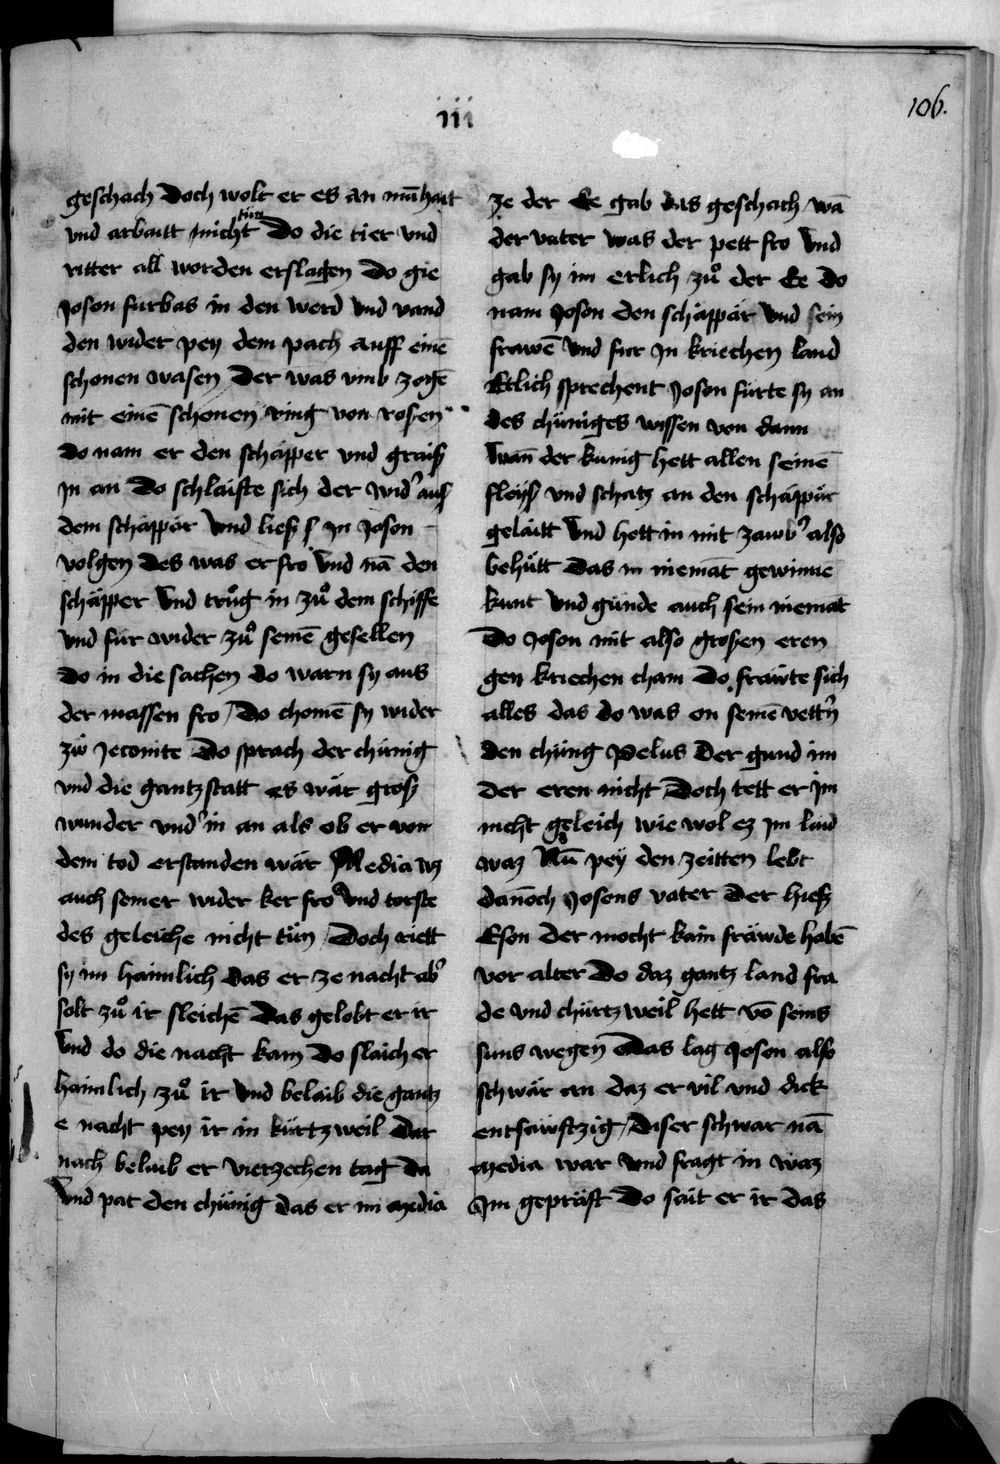 iii
106.
geschach Doch wolt er es an mãhait
vnd arbaitt nicht tün Do die tier vnd
ritter all worden erslagen Do gie
Joson furbas in den werd vnd vand
den wider pey dem pach auff einẽ
schonen wasen Der was vmb zogẽ
mit einẽ schonen ring von rosen
Do nam er den schäpper vnd graiff
Jn an Do schlaifte sich der wid' aus
dem schäppär vnd ließ Jn Joson
volgen Des was er fro vnd nã den
schäpper vnd trůg in zů dem schiffe
vnd für wider zů seinẽ gesellen
Do in die sachen do warn sy aus
der massen fro / Do chomẽ sy wider
zů Jeconite Do sprach der chünig
vnd die gantz statt es wär groß
wunder vnd' in an als ob er von
dem tod erstanden wär Media wz
auch seiner wider ker fro vnd torste
des geleiche nicht tůn / Doch riett
sy im haimlich das er ze nacht ab'
solt zů ir sleichẽ Das gelobt er ir
vnd do die nacht kam Do slaich er
haimlich zů ir vnd belaib die gantz
e nacht pey ir in kürtzweil Dar
nach belaib er vierzechen tag da
vnd pat den chünig das er im media
ze der Ee gab das geschach wã
der vater was der pett fro vnd
gab sy im erlich zů der Ee do
nam Joson den schäppär vnd sein
frawẽ vnd fur Jn kriechen land
Etlich sprechent Joson fürte sy an
des chüniges wissen von dann
wañ der kunig hett allen seinẽ
fleyß vnd schatz an den schäppär
gelaitt vnd hett in mit zawb' also
behütt Das in niemãt gewinne
kunt vnd günde auch sein niemãt
Do Joson mit also großen eren
gen kriechen cham Do fräwte sich
alles das do was on seinẽ vett'n
den chüng Pelus Der gund im
der eren nicht Doch tett er jm
nicht geleich wie wol ez jm laid
waz Nũ pey den zeitten lebt
dañoch Josons vater Der hieß
Eson der mocht kain fräwde habẽ
vor alter Do daz gantz land frä
de vnd chürtzweil hett võ seins
suns wegen Das lag Joson also
schwär an daz er vil vnd dick
entsäwftzig / Diser schwär nã
media war vnd fragt in waz
Jm gepräst Do sait er ir das